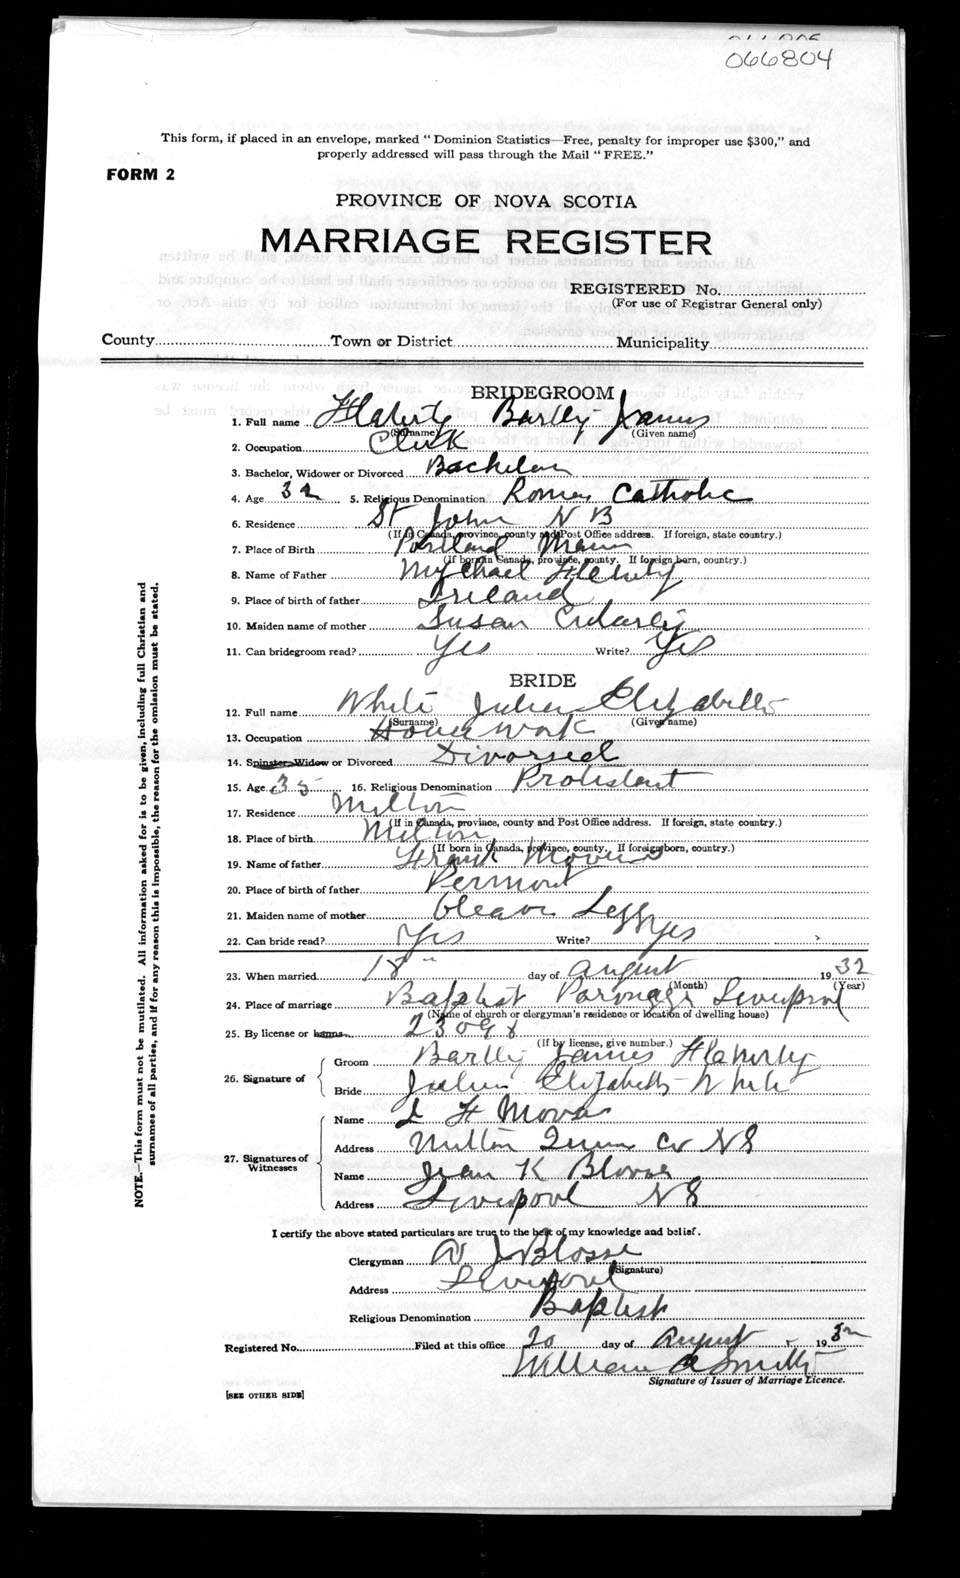 066804
This form, if placed in an envelope, marked "Dominion Statistics—Free, penalty for improper use $300," and
properly addressed will pass through the Mail "FREE."
FORM 2
PROVINCE OF NOVA SCOTIA
MARRIAGE REGISTER
REGISTERED No.
(For use of Registrar General only)
County Town or District Municipality
BRIDEGROOM
1. Full name Flaherty Bartley James
(Surname) (Given name)
2. Occupation Clerk
3. Bachelor, Widower or Divorced Bachelor
4. Age 32 5. Religious Denomination Roman Catholic
6. Residence St John N B
(If in Canada, province, county and Post Office address. If foreign, state country.)
7. Place of Birth Portland Maine
(If born in Canada, province, county. If foreign born, country.)
8. Name of Father Mychael Flaherty
9. Place of birth of father Ireland
10. Maiden name of mother Susan
11. Can bridegroom read? Yes Write? Yes
BRIDE
12. Full name White Julia Elizabeth
(Surname) (Given name)
13. Occupation House work
14. Spinster, Widow or Divorced Divorsed
15. Age 35 16. Religious Denomination Protestant
17. Residence Milton
(If in Canada, province, county and Post Office address. If foreign, state country.)
18. Place of birth Milton
(If born in Canada, province, county. If foreign born, country.)
19. Name of father Frank
20. Place of birth of father Vermont
21. Maiden name of mother
22. Can bride read? Yes Write? Yes
23. When married 18" day of August 1932
(Month) (Year)
24. Place of marriage Baptist Parsonage Liverpool
(Name of church or clergyman's residence or location of dwelling house)
25. By license or banns 23098
(If by license, give number.)
26. Signature of Groom Bartley James Flaherty
Bride Julia Elizabeth White
27. Signatures of Witnesses Name L H
Address Milton Queens Co NS
Name Jean K Blosse
Address Liverpool NS
I certify the above stated particulars are true to the best of my knowledge and belief.
Clergyman W J Blosse
(Signature)
Address Liverpool
Religious Denomination Baptist
Registered No. Filed at this office 20 day of August 1932
William A Smith
Signature of Issuer of Marriage Licence.
[SEE OTHER SIDE]
NOTE.—This form must not be mutilated. All information asked for is to be given, including full Christian and
surnames of all parties, and if for any reason this is impossible, the reason for the omission must be stated.